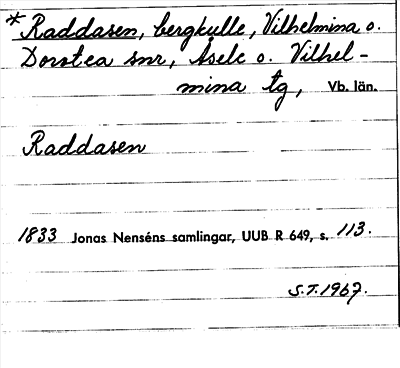 * Raddasen, bergkulle, Vilhelmina o.
Dorotea snr, Åsele o. Vilhel-
mina tg, Vb. län.
Raddasen
1833 Jonas Nenséns samlingar, UUB R 649, s. 113.
S.T. 1967.